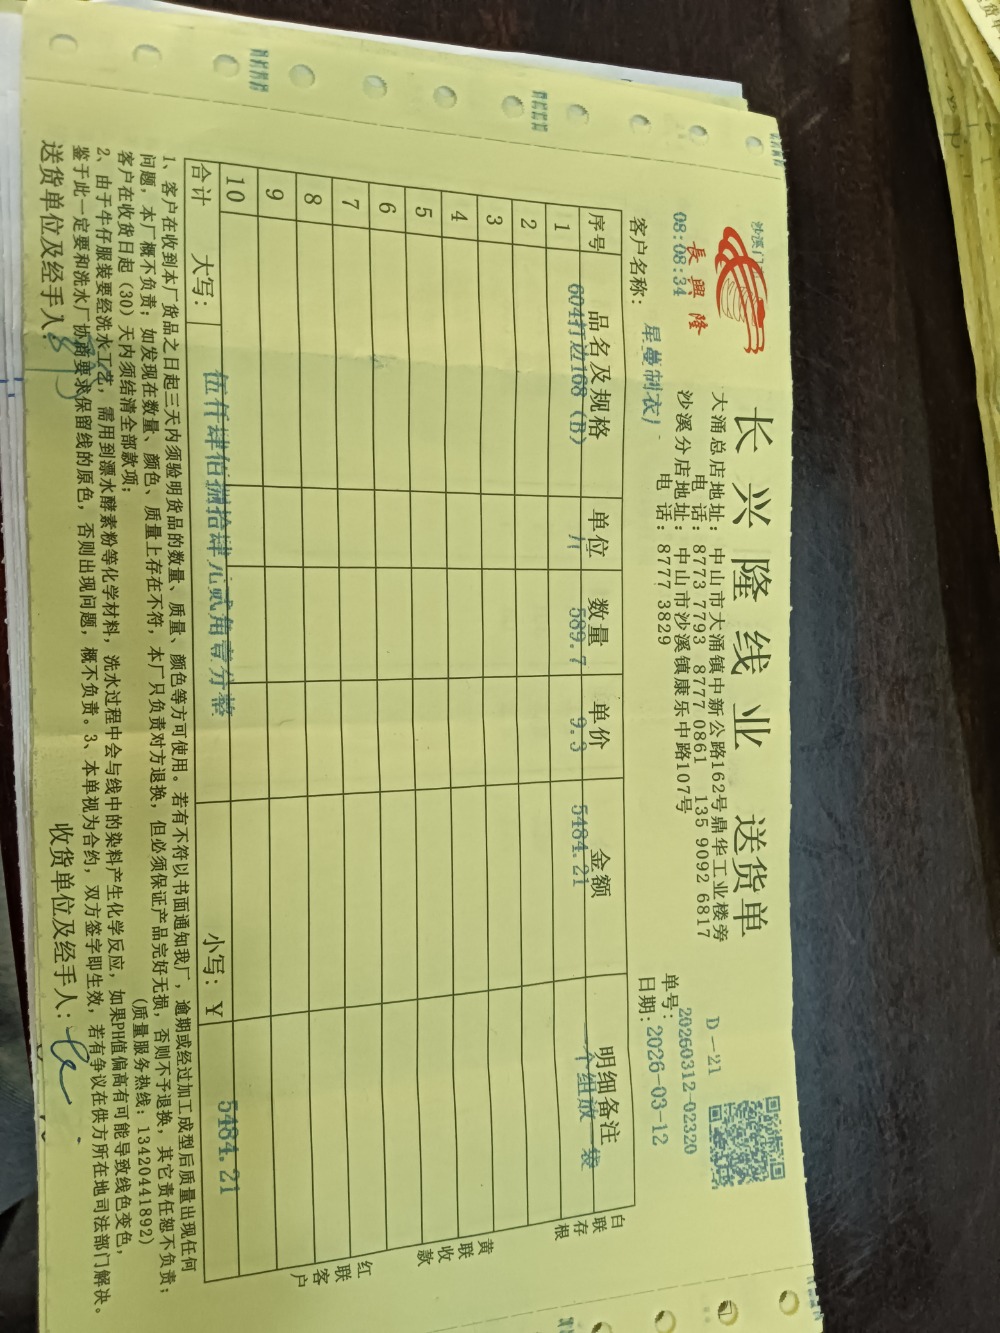 長興隆
沙溪门
08:08:34
长兴隆线业 送货单
大涌总店地址: 中山市大涌镇中新公路162号鼎华工业楼旁
电 话: 8773 7793 8777 0861 135 9092 6817
沙溪分店地址: 中山市沙溪镇康乐中路107号
电 话: 8777 3829
D一21
单号: 20260312-02320
日期: 2026-03-12
客户名称: 星曼制衣厂
序号 品名及规格 单位 数量 单价 金额 明细备注
1 604打边168（B） 589.7 9.3 5484.21 一个组放一袋
2
3
4
5
6
7
8
9
10
合计 大写: 伍仟肆佰捌拾肆元贰角壹分整 小写: ￥ 5484.21
白联存根
黄联收款
红联客户
1、客户在收到本厂货品之日起三天内须验明货品的数量、质量、颜色等方可使用。若有不符以书面通知我厂，逾期或经过加工成型后质量出现任何
问题，本厂概不负责；如发现在数量、颜色、质量上存在不符，本厂只负责对方退换，但必须保证产品完好无损，否则不予退换，其它责任恕不负责；
客户在收货日起（30）天内须结清全部款项； (质量服务热线: 13420441892)
2、由于牛仔服装要经洗水工艺，需用到漂水酵素粉等化学材料，洗水过程中会与线中的染料产生化学反应，如果PH值偏高有可能导致线色变色，
鉴于此一定要和洗水厂协商要求保留线的原色，否则出现问题，概不负责。3、本单视为合约，双方签字即生效，若有争议在供方所在地司法部门解决。
送货单位及经手人: 收货单位及经手人: